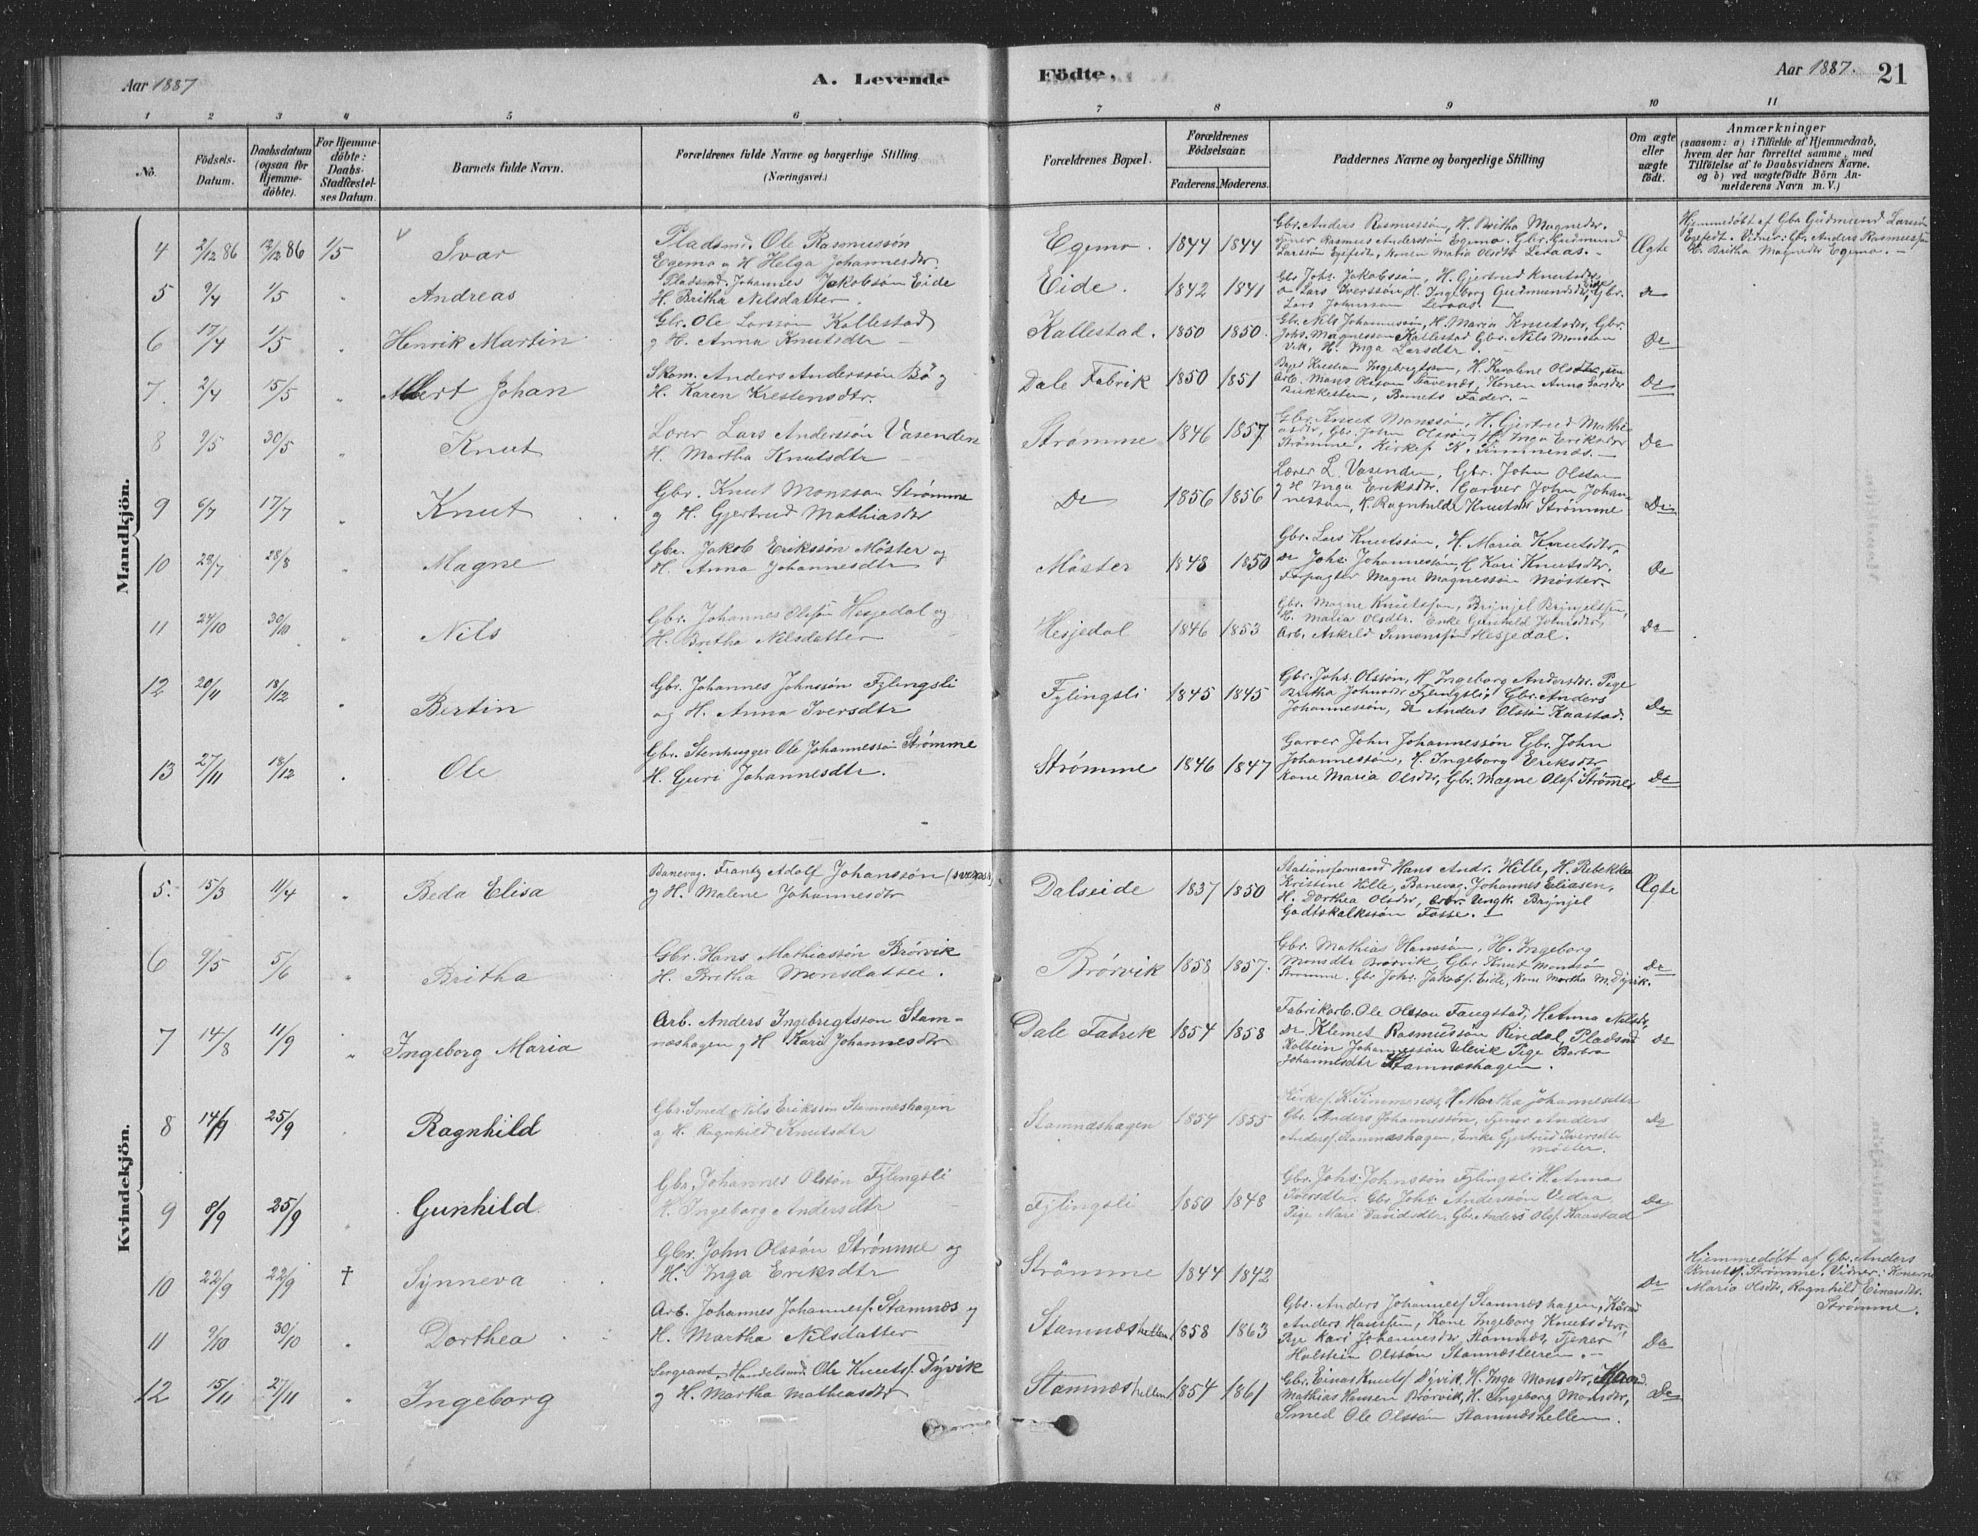 Aar 1887
A. Levende
Födte.
Aar 1887.
21
1 2 3 4 5 6 7 8 9 10 11
No.
Födsels-Datum.
Daabsdatum (ogsaa for Hjemme-döbte).
For Hjemme-döbte: Daabs-Stadfæstel-ses Datum.
Barnets fulde Navn.
Forældrenes fulde Navne og borgerlige Stilling (Næringsvei.)
Forældrenes Bopæl.
Forældrenes Födselsaar.
Faderens. Moderens.
Faddernes Navne og borgerlige Stilling
Om ægte eller uægte födt.
Anmærkninger
(saasom: a) i Tilfælde af Hjemmedaab,
hvem der har forrettet samme, med
Tilföielse af to Daabsvidners Navne.
og b) ved uægtefödte Börn An-
melderens Navn m. V.)
Mandkjön.
4 2/12 86 12/12 86 1/5 Ivar
Pladsmd. Ole Rasmussön
Egemo og H Helga Johannesdtr
Egemo. 1844 1844
Gbr. Anders Rasmussön, H. Britha Magnedtr.
Rasmus Anderssön Egemo. Gbr. Gudmund
Larssön Konen Maria Olsdtr
Ægte
Hjemmedöbt af Gbr Gudmund Larssön
Vidner: Gbr. Anders Rasmussön
H. Britha Magnedtr Egemo.
5 9/4 1/5 " Andreas
Pladsmd. Johannes Jakobsön Eide
H. Britha Nilsdatter.
Eide. 1842 1841
Gbr Johs. Jakobssön, H. Gjertrud Knutsdtr
Lars Iverssön H. Ingeborg Gudmundsdtr, Gbr.
Lars Johnsson
do
6 17/4 1/5 " Henrik Martin
Gbr. Ole Larssön Kallestad
og H. Anna Knutsdtr
Kallestad. 1850 1850.
Gbr. Nils Johannessön, H. Maria Knutsdtr, Gbr.
Johs. Magnesson Kallestad Gbr. Nils Monsson
Vik, H. Inga Larsdtr.
Do
7. 2/4 15/5 " Albert Johan
Skom. Anders Anderssön Bö og
H. Karen Krestensdtr.
Dale Fabrik 1850 1851
Kristian Ingebrigtsson, H. Karoline
Arb. Mons Olsson Stavenes, Konen Anna
Barnets Fader.
Do
8 9/5 30/5 " Knut
Lærer Lars Anderssön Vasenden
H. Martha Knutsdtr
Strömme 1846 1857
Gbr. Knut Monssön, H. Gjertrud Mathi-
asdtr, Gbr. John Olsson, H. Inga Eriksdtr
Strömme, Kirkes. K. Simmenæs.
Do
9 6/7 17/7 " Knut
Gbr. Knut Monsson Strömme
og H. Gjertrud Mathiasdtr
Do 1856 1856
Lærer L. Vasenden, Gbr. John Olsson
og H Inga Eriksdtr. Garver John Johan-
nesson, H. Ragnhilde Knutsdtr Strömme
Do
10 23/7 28/8 Magne
Gbr. Jakob Erikssön Möster og
H. Anna Johannesdtr
Möster 1848 1850
Gbr. Lars Knutssön, H. Maria Knutsdtr,
do Johs. Johannessön, H Kari Knutsdtr.
Magne Magnessön Möster
Do
11 24/10 30/10 " Nils
Gbr. Johannes Olssön Hesjedal og
H. Britha Nilsdatter
Hesjedal 1846 1853
Gbr. Magne Knutsson, Brynjel Brynjelssön,
H. Maria Olsdtr. Enke Gunhild Johnsdtr,
Arb. Askeld Simonssön Hesjedal.
Do
12 20/11 18/12 " Bertin
Gbr. Johannes Johnssön Fylingsli
og H. Anna Iversdtr
Fylingsli 1845 1845
Gbr. Johs. Olssön, H Ingeborg Andersdtr, Pige
Britha Johnsdtr Fylingsli, Gbr. Anders
Johannessön, do Anders Olssön Kaastad.
Do
13 27/11 18/12 . Ole
Gbr. Stenhugger Ole Johannessön Strömme
H. Guri Johannesdtr.
Strömme 1846 1847
Garver John Johannessön Gbr. John
Johannessön, H. Ingeborg Eriksdtr
Kone Maria Olsdtr, Gbr. Magne Olss. Strömme
Do
Kvindekjön.
5. 15/3 11/4 " Beda Elisa
Banevog. Frantz Adolf Johanssön (svensk)
og H. Malene Johannesdtr
Dalseide 1837 1850
Stationsformand Hans Andr. Hille, H. Rebekka
Kristine Hille, Banevog. Johannes Eliasen,
H. Dorthea Olsdtr, Arbr. Ungk. Brynjel
Godtskalkssön Fosse.
Ægte
6 9/5 5/6 " Britha
Gbr. Hans Mathiassön Brörvik
H. Britha Monsdatter.
Brörvik 1858 1857.
Gbr. Mathias Hanssön, H. Ingeborg
Monsdtr Brörvik, Gbr Knut Monssön
Strömme. Gbr Johs. Jakobs. Eide, Kone Martha M. Dyvik.
Do
7 14/8 11/9 " Ingeborg Maria
Arb. Anders Ingebregtsson Stam-
næshagen og H Kari Johannesdtr
Dale Fabrik 1854 1858
Fabrikarb. Ole Olsson Fangstad, H. Anna Nilsdtr,
do Klemet Rasmussön Rindal, Pladsmd
Kolbein Johannessön Ulvik Pige Barbra
Johannesdtr Stamnæshagen.
Do
8 14/9 25/9 Ragnhild
Gbr. Smed Nils Eriksson Stamnæshagen
og H. Ragnhild Knutsdtr
Stamnæshagen 1854 1855
Kirkes. K. Simmenæs, H. Martha Johannesdtr
Gbr. Anders Johannessön, Tjener Anders
Anderss. Stamnæshagen, Enke Gjertrud Iversdtr
Möster.
Do
9 8/9 25/9 Gunhild
Gbr. Johannes Olssön Fylingsli
H. Ingeborg Andersdtr
Fylingsli 1850 1848
Gbr. Johs. Johnssön Fylingsli H. Anna
Iversdtr. Gbr. Johs. Anderssön Vedaa
Pige Mari Davidsdtr, Gbr. Anders Olss. Kaastad
Do
10 22/9 22/9 † Synneva
Gbr. John Olssön Strömme og
H. Inga Eriksdtr
Strömme 1844 1842
Do
Hjemmedöbt af Gbr. Anders
Knuts. Strömme. Vidner: Konerne
Maria Olsdtr, Ragnhild Einarsdtr
Strömme.
11 9/10 30/10 " Dorthea
Arb. Johannes Johanness. Stamnæs og
H. Martha Nilsdatter
Stamnæshellen 1858 1863
Gbr. Anders Johanness. Stamnæshagen,
Anders Hanssen, Kone Ingeborg Knutsdtr,
Pige Kari Johannesdtr, Stamnæs, Tjener
Holstein Olssön Stamnæsleeren.
Do
12 15/11 27/11 " Ingeborg
Sergeant, Handelsmd. Ole Knuts. Dyvik
og H. Martha Mathiasdtr
Stamnæshellen 1854 1861
Gbr. Einar Knuts. Dyvik, H. Inga Monsdtr,
Mathias Hansen Brörvik, H. Ingeborg Monsdtr,
Smed Ole Olssön Stamnæshellen.
Do